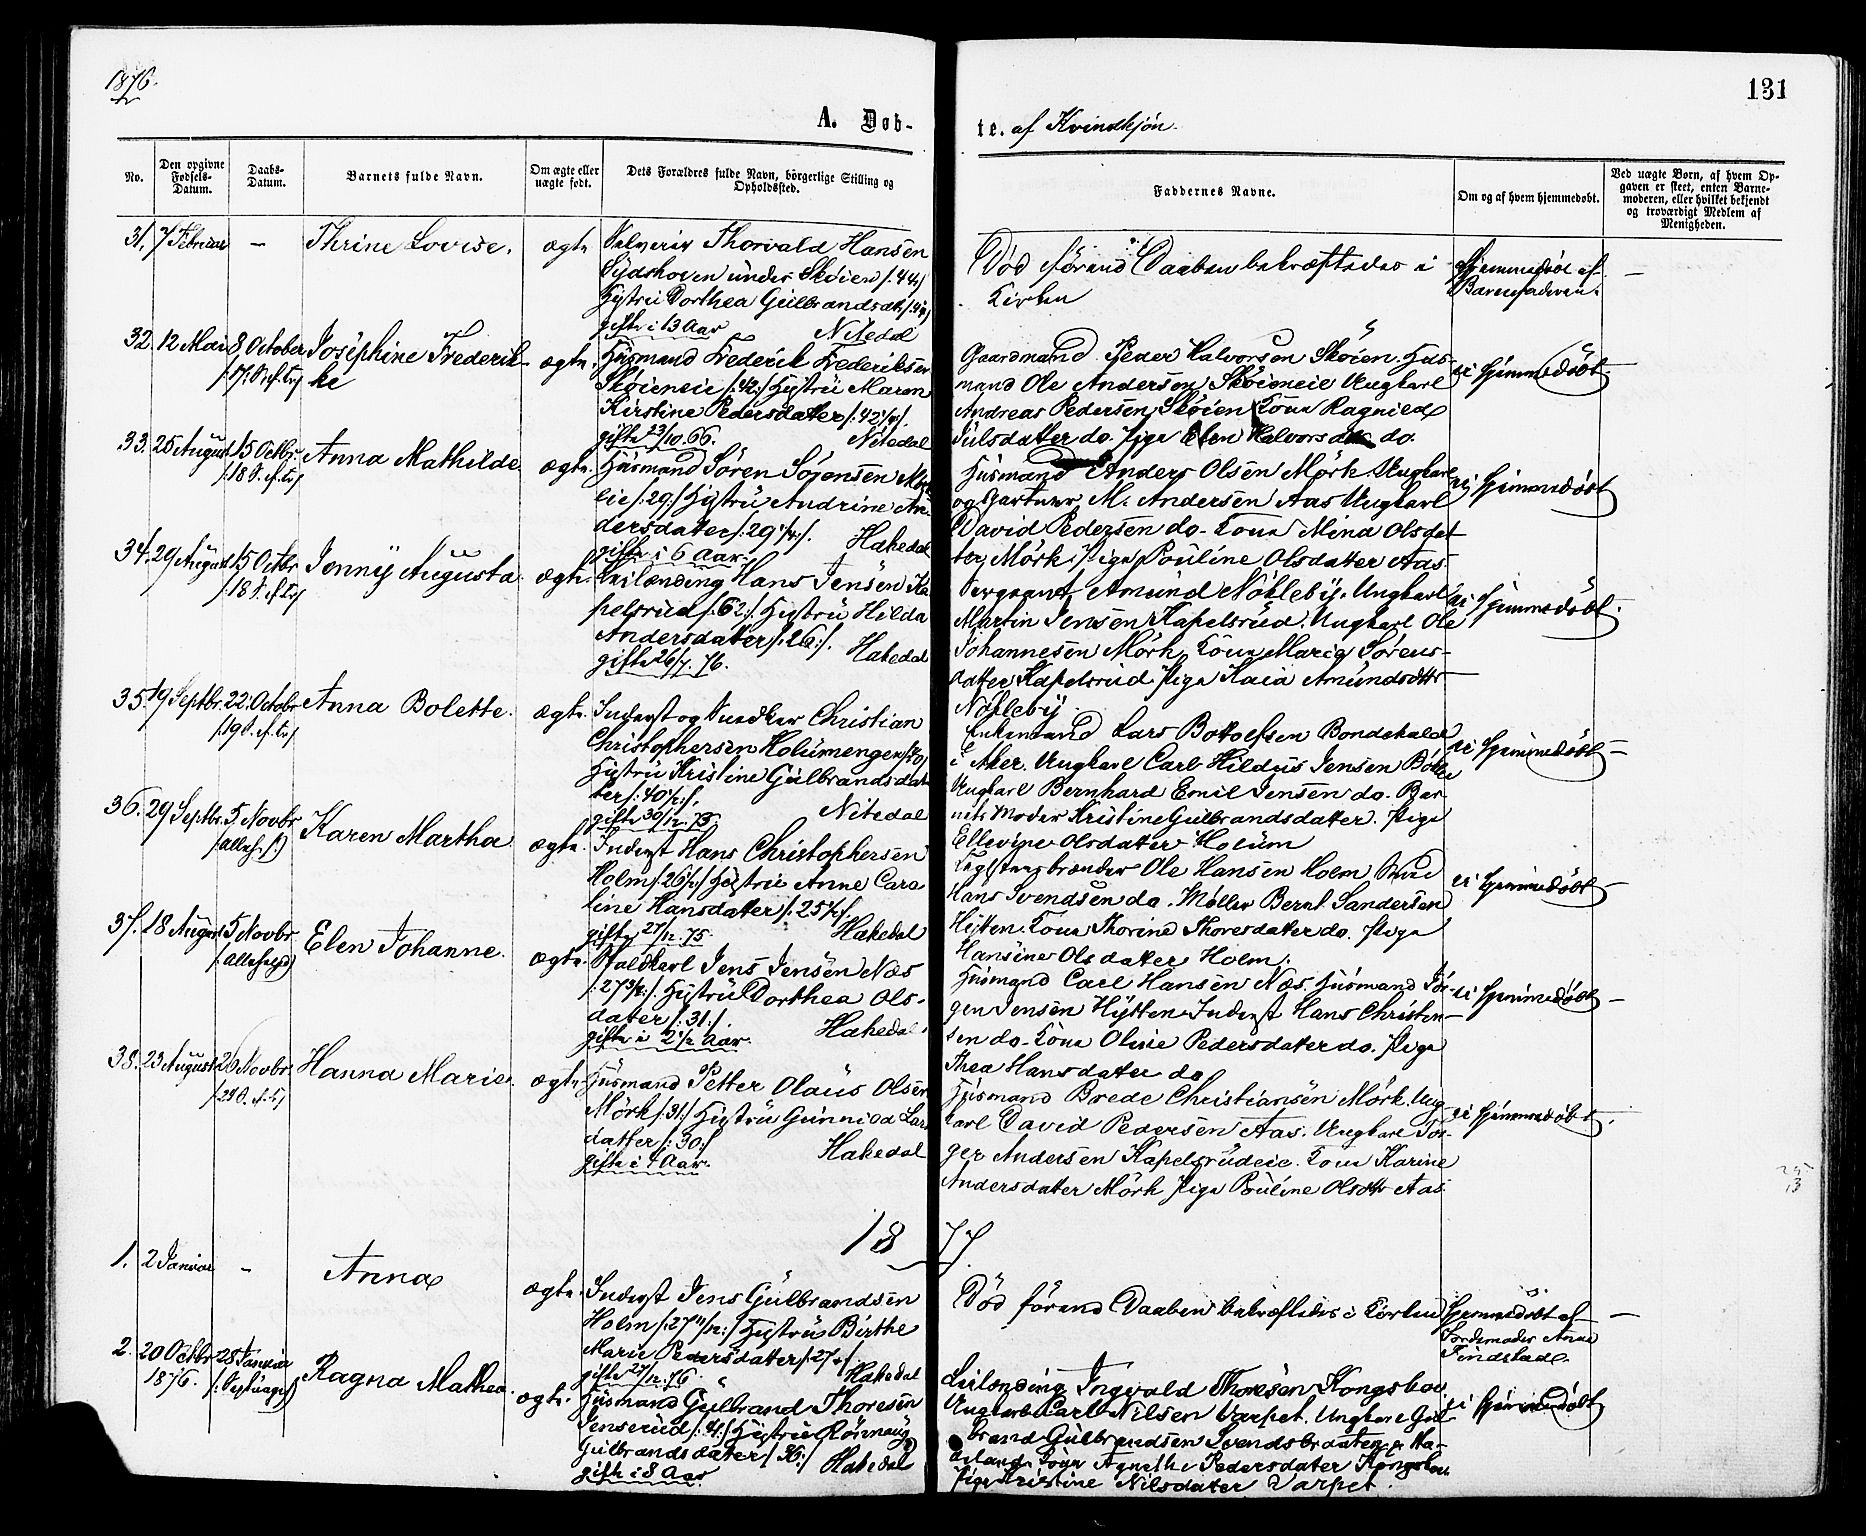 1876.
131
A. Døb-
te. af Kvindkjøn.
No.
Den opgivne Fødsels-Datum.
Daabs-Datum.
Barnets fulde Navn.
Om ægte eller uægte født.
Dets Forældres fulde Navn, börgerlige Stilling og Opholdssted.
Faddernes Navne.
Om og af hvem hjemmedøbt.
Ved uægte Børn, af hvem Op-
gaven er skeet, enten Barne-
moderen, eller hvilket bekjendt
og troværdigt Medlem af
Menigheden.
31. 7 Februar - Thrine Lovise. ægte Selveier Thorvald Hansen
under Skøien /:44:/
Hustru Dorthea Gulbrandsdtr
gifte i 13 Aar Nitedal
Død førend Daaben bekræftedes i
Kirken
Hjemmedøbt af
Barnefaderen. -
32. 12 Mai 8 October Josephine Frederik- ægte. Husmand Frederik Frederiksen
/:17. S. ef. Tr:/ ke Skøieneie /:42:/ Hustru Maren
Kirstine Pedersdatter /:42:/
gifte 23/10.66. Nitedal
Gaardmand Peder Halvorsen Skøien. Hus-
mand Ole Andersen Skøieneie Ungkarl
Andreas Pedersen Skøien Kona Ragnild
Julsdatter do. Pige Elen Halvorsdatter do.
ei hjemmedøbt.
33. 25 August 15 Octbr Anna Mathilde. ægte. Husmand Sören Sörensen
/:18 S. ef. Tr:/ eie /:29:/ Hustru Andrine An-
dersdatter /:29 :/. Hakedal
gifte i 6 Aar.
Husmand Anders Olsen Mörk Ungkarl
og Gartner M. Andersen Aas Ungkarl
David Pedersen do. Kona Mina Olsdat
ter Mörk. Pige Pouline Olsdatter Aas.
ei hjemmedøbt
34. 29 August 15 Octbr Jenny Augusta. ægte. Leilænding Hans Jensen Ka
/:18 S. ef. Tr:/ pelsrud /:62:/ Hustru Hilda
Andersdatter /:26:/. Hakedal
gifte 26/7. 76.
Sergeant Amund Nökleby. Ungkarl
Martin Jensen Kapelsrud. Ungkarl Ole
Johannesen Mörk. Kona Maria Sörens-
datter Kapelsrud Pige Kaia Amundsdttr
Nökleby
ei hjemmedøbt.
35. 19 Septbr. 22. Octobr Anna Bolette. ægte. Inderst og Snedker Christian
/:19 S. ef. Tr:/ Christophersen Holumengen
Hustru Kristine Gulbrandsdat
ter /:40 :/.
gifte 30/12.75 Nitedal
Enkemand Lars Bottolfsen
i Aker. Ungkarl Carl Hildus Jensen
Ungkarl Bernhard Emil Jensen do. Bar-
nets Moder Kristine Gulbrandsdatter. Pige
Ellevine Olsdatter Holum
ei hjemmedøbt -
36. 29 Septbr. 5 Novbr Karen Martha ægte. Inderst Hans Christophersen
Holm /:26 :/ Hustru Anne Caro
line Hansdatter /:25 :/.
gifte 27/12.75 Hakedal
Teglstensbrænder Ole Hansen Holm
Hans Svendsen do. Møller Bernt Sandersen
Hytten. Kona Thorine Thoresdatter do. Pige
Hansine Olsdatter Holm.
ei hjemmedøbt -
37. 18 August 5 Novbr Elen Johanne. ægte. Staldkarl Jens Jensen Næs
/:27 :/. Hustru Dorthea Ols-
datter /:31:/.
gifte i 2½ Aar. Hakedal.
Husmand Carl Hansen Næs. Husmand Jör-
gen Jensen Hytten. Inderst Hans Christen-
sen do. Kona Oline Pedersdatter do. Pige
Thea Hansdatter do
ei hjemmedøbt -
38. 23 August 26 Novbr. Hanna Marie. ægte. Husmand Petter Olaus Olsen
Mörk /:31:/ Hustru Gunnild Lars
datter /:30:/ Hakedal
gifte i 7 Aar.
Husmand Brede Christiansen Mörk. Ung
karl David Pedersen Aas. Ungkarl Jör-
gen Andersen Kapelsrudeie. Kona Karine
Andersdatter Mörk Pige Pouline Olsdttr Aas.
ei hjemmedøbt.
1877.
1. 2 Januar - Anna ægte. Inderst Jens Gulbrandsen
Holm /:27 11/12:/ Hustru Birthe
Marie Pedersdatter /:27 :/
gifte 27/12.76. Hakedal
Død førend Daaben bekræftedes i Kirken
Hjemmedøbt af
Jordemoder Anna
Findstad. -
2. 20 Octbr 28 Januar Ragna Mathea. ægte. Husmand Gulbrand Thoresen
1876. /:Septuages:/ Jenserud /:41:/ Hustru Rønnaug
Gulbrandsdatter /:36:/ Hakedal
gifte i 8 Aar
Leilænding Ingvald Thoresen Kongsbo.
Ungkarl Carl Nilsen Varpet. Ungkarl Gul
brand Gulbrandsen
Kona Agnethe Pedersdatter
Pige Kristine Nilsdatter Varpet.
ei hjemmedøbt